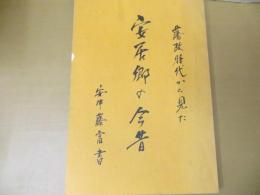 藩政時代から見た
安居郷の今昔
安井藤雷書